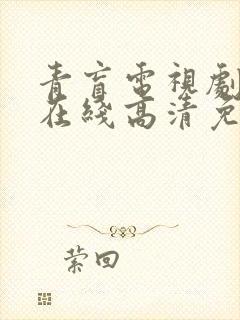 青盲電視劇
在綫高清免
萦回